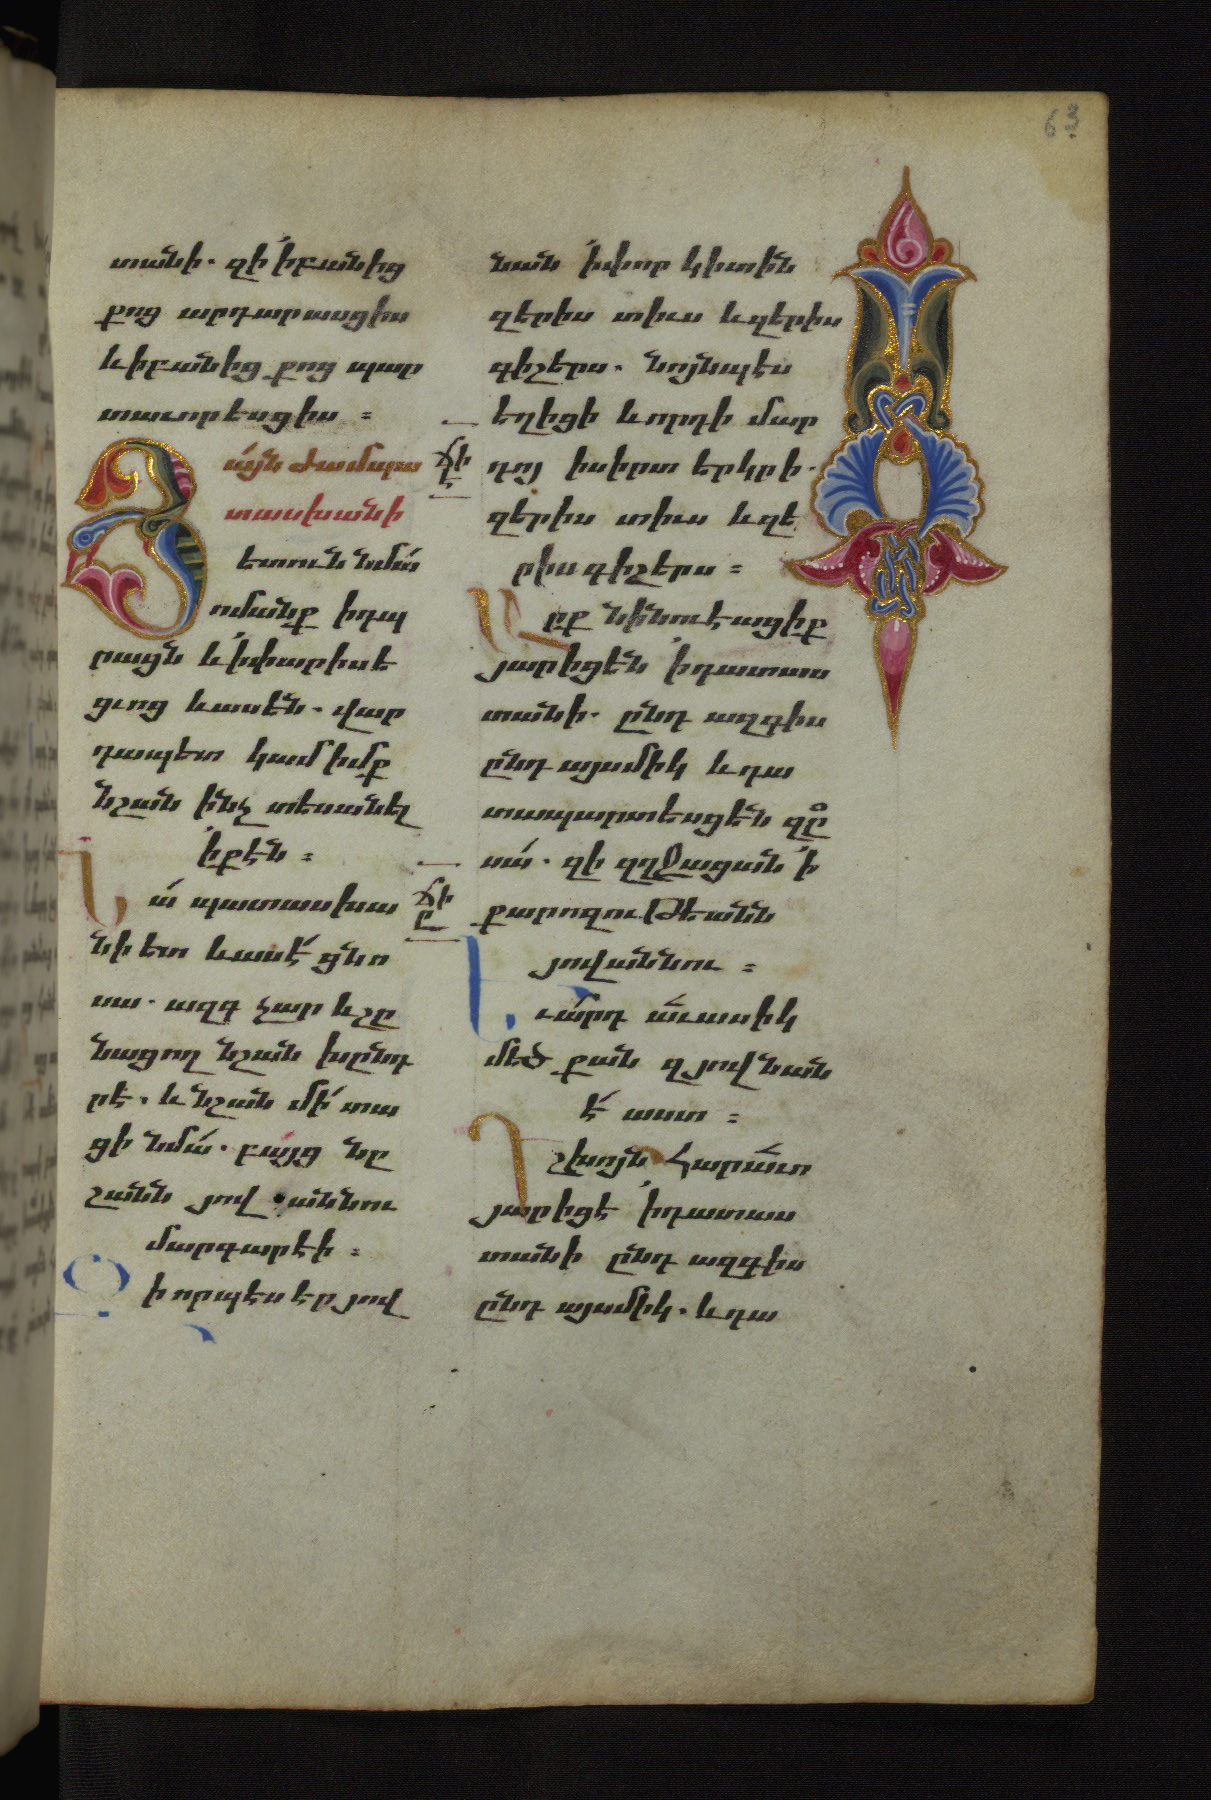 63
տանի. զի ՛ի բանից
քոց արդարասցիս
և ի բանից քոց պար
տաւորեսցիս :
Յայն ժամ պա
տասխանի
ետուն նմա՛
ոմանք ի դպ
րացն և ՛ի փարիսե
ցւոց և ասեն. վար
դապետ կամ իմք
նշան ինչ տեսանել
՛ի քէն :
Նա՛ պատասխա
նի ետ և ասէ՛ ցնո
սա. ազգ չար և շը
նացող նշան խընդ
րէ. և նշան մի՛ տա
ցի նմա՛. բայց նը
շանն յով աննու
մարգարէի :
Զի որպէս էր յով
նան ՛ի փոր կիտին
զերիս տիւս և զերիս
գիշերս. նոյնպէս
եղիցի և որդի մար
ճի
է
դոյ ի սիրտ երկրի.
զերիս տիւս և զե
րիս գիշերս :
Արք նինուէացիք
յարիցեն ՛ի դատաս
տանի. ընդ ազգիս
ընդ այսմիկ և դա
տապարտեսցեն զը
սա՛. զի զղջացան ՛ի
ճի
ը
քարոզութեանն
յովաննու :
Եւ ա՛րդ ա՛ւասիկ
մեծ քան զյովնան
է՛ աստ :
Դշխոյն հարաւո
յարիցէ ՛ի դատաս
տանի ընդ ազգիս
ընդ այսմիկ. և դա